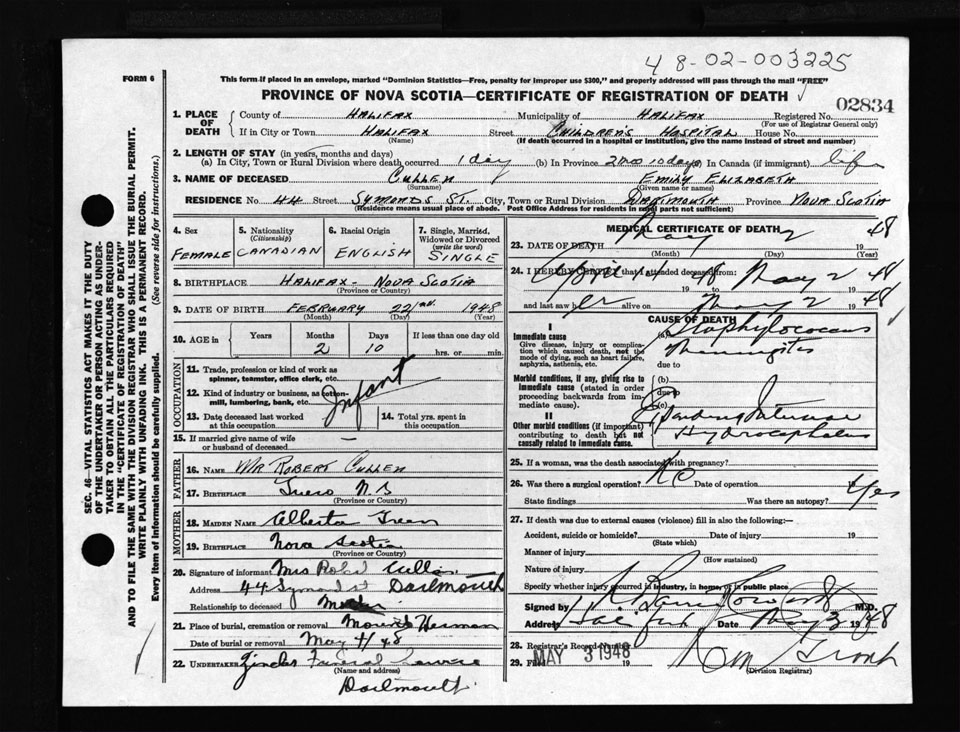 48-02-003225
FORM 6
This form if placed in an envelope, marked "Dominion Statistics—Free, penalty for improper use $300," and properly addressed will pass through the mail "FREE"
PROVINCE OF NOVA SCOTIA—CERTIFICATE OF REGISTRATION OF DEATH
02834
SEC. 46—VITAL STATISTICS ACT MAKES IT THE DUTY
OF THE UNDERTAKER OR PERSON ACTING AS UNDER-
TAKER TO OBTAIN ALL THE PARTICULARS REQUIRED
IN THE "CERTIFICATE OF REGISTRATION OF DEATH"
AND TO FILE THE SAME WITH THE DIVISION REGISTRAR WHO SHALL ISSUE THE BURIAL PERMIT.
WRITE PLAINLY WITH UNFADING INK. THIS IS A PERMANENT RECORD.
Every item of information should be carefully supplied. (See reverse side for instructions.)
1. PLACE OF DEATH
County of HALIFAX Municipality of HALIFAX Registered No.
(For use of Registrar General only)
If in City or Town HALIFAX Street CHILDREN'S HOSPITAL House No.
(Name) (If death occurred in a hospital or institution, give the name instead of street and number)
2. LENGTH OF STAY (in years, months and days)
(a) In City, Town or Rural Division where death occurred 1 day (b) In Province 2 mo 10 days In Canada (if immigrant) life
3. NAME OF DECEASED CULLEN EMILY ELIZABETH
(Surname) (Given name or names)
RESIDENCE No. 44 Street SYMONDS ST. City, Town or Rural Division DARTMOUTH Province NOVA SCOTIA
(Residence means usual place of abode. Post Office Address for residents in rural parts not sufficient)
4. Sex FEMALE
5. Nationality (Citizenship) CANADIAN
6. Racial Origin ENGLISH
7. Single, Married, Widowed or Divorced (write the word) SINGLE
8. BIRTHPLACE HALIFAX - NOVA SCOTIA
(Province or Country)
9. DATE OF BIRTH FEBRUARY 22nd 1948
(Month) (Day) (Year)
10. AGE in Years Months Days If less than one day old
2 10 hrs. or min.
OCCUPATION
11. Trade, profession or kind of work as
spinner, teamster, office clerk, etc.
12. Kind of industry or business, as cotton-
mill, lumbering, bank, etc.
Infant
13. Date deceased last worked
at this occupation
14. Total yrs. spent in
this occupation
15. If married give name of wife
or husband of deceased —
FATHER
16. NAME MR ROBERT CULLEN
17. BIRTHPLACE Truro N.S
(Province or Country)
MOTHER
18. MAIDEN NAME Alberta
19. BIRTHPLACE Nova Scotia
(Province or Country)
20. Signature of informant Mrs Robt Cullen
Address 44 Symonds St Dartmouth
Relationship to deceased Mother
21. Place of burial, cremation or removal Mount Hermon
Date of burial or removal May 4/48
22. UNDERTAKER Funeral Service
(Name and address)
Dartmouth
MEDICAL CERTIFICATE OF DEATH
23. DATE OF DEATH May 2 1948
(Month) (Day) (Year)
24. I HEREBY CERTIFY that I attended deceased from:
April 1948 to May 2 1948
and last saw her alive on May 2 1948
CAUSE OF DEATH
I
Immediate cause
Give disease, injury or complica-
tion which caused death, not the
mode of dying, such as heart failure,
asphyxia, asthenia, etc.
(a) Staphylococcus
Meningitis
due to
Morbid conditions, if any, giving rise to
immediate cause (stated in order
proceeding backwards from im-
mediate cause).
(b)
due to
(c)
II
Other morbid conditions (if important)
contributing to death but not
causally related to immediate cause.
Hydrocephalus
25. If a woman, was the death associated with pregnancy?
26. Was there a surgical operation? NO Date of operation 19
State findings Was there an autopsy? Yes
27. If death was due to external causes (violence) fill in also the following:—
Accident, suicide or homicide? Date of injury 19
(State which)
Manner of injury
(How sustained)
Nature of injury
Specify whether injury occurred in industry, in home, or in public place
Signed by M.D.
Address Halifax Date May 3 1948
28. Registrar's Record Number
29. Filed MAY 3 1948 19
(Division Registrar)